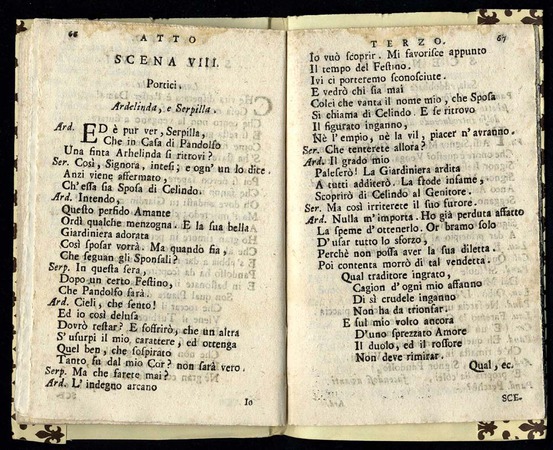 66
ATTO
SCENA VIII.
Portici.
Ardelinda, e Serpilla.
Ard. ED è pur ver, Serpilla,
Che in Casa di Pandolfo
Una finta Arhelinda si ritrovi?
Ser. Così, Signora, intesi; e ogn' un lo dice.
Anzi viene affermato,
Ch' essa sia Sposa di Celindo.
Ard. Intendo,
Questo perfido Amante
Ordì qualche menzogna. E la sua bella
Giardiniera adorata
Così sposar vorrà. Ma quando fia,
Che seguan gli Sponsali?
Serp. In questa sera,
Dopo un certo Festino,
Che Pandolfo farà.
Ard. Cieli, che sento!
Ed io così delusa
Dovrò restar? E soffrirò, che un altra
S' usurpi il mio carattere, ed ottenga
Quel ben, che sospirato
Tanto fu dal mio Cor? non sarà vero.
Serp. Ma che farete mai?
Ard. L' indegno arcano
Io
TERZO.
67
Io vuò scoprir. Mi favorisce appunto
Il tempo del Festino.
Ivi ci porteremo sconosciute.
E vedrò chi sia mai
Colei che vanta il nome mio, che Sposa
Si chiama di Celindo. E se ritrovo
Il figurato inganno,
Nè l' empio, nè la vil, piacer n' avranno.
Ser. Che tenterete allora?
Ard. Il grado mio
Paleserò! La Giardiniera ardita
A tutti additerò. La frode insame,
Scoprirò di Celindo al Genitore.
Ser. Ma così irriterete il suo furore.
Ard. Nulla m' importa. Ho già perduta affatto
La speme d' ottenerlo. Or bramo solo
D' usar tutto lo sforzo,
Perchè non possa aver la sua diletta.
Poi contenta morrò di tal vendetta.
Qual traditore ingrato,
Cagion d' ogni mio affanno
Di sì crudele inganno
Non ha da trionfar.
E sul mio volto ancora
D' uno sprezzato Amore
Il duolo, ed il rossore
Non deve rimirar.
Qual, ec.
SCE-